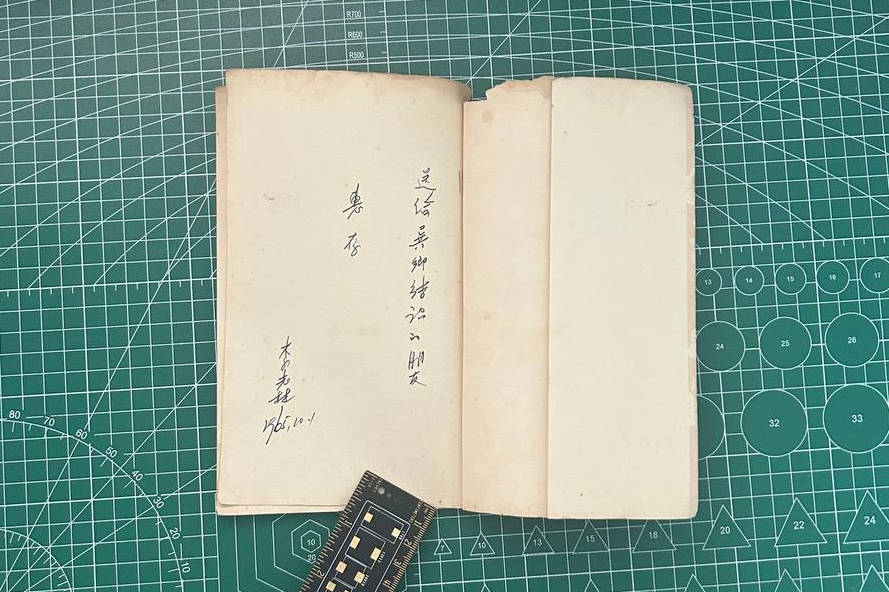 送给異鄉结识的朋友
惠存
1965.10.1
R700
R600
R500
80
70
60
50
40
30
20
10
13 14 15 16 17
24 25 26
32 33
10
20
7 10 13 15 18 20 22 24